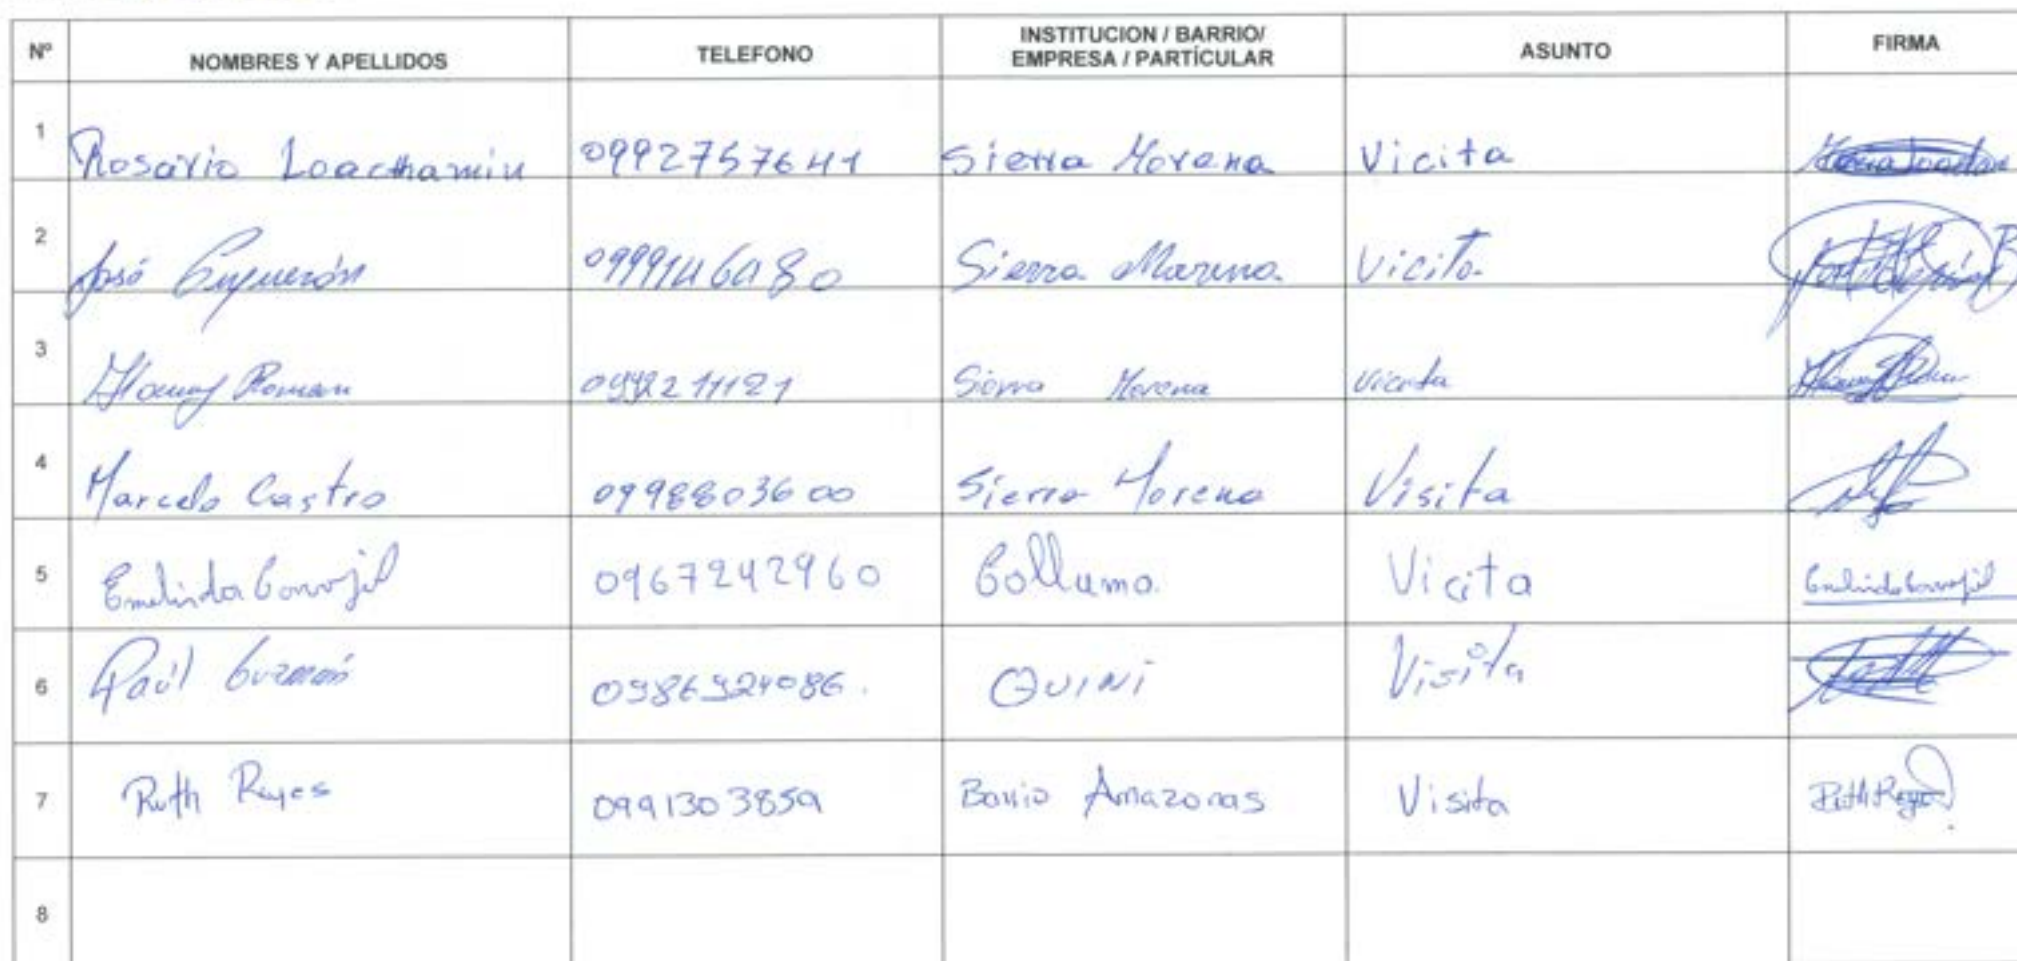 Nº NOMBRES Y APELLIDOS TELEFONO INSTITUCION / BARRIO/ EMPRESA / PARTÍCULAR ASUNTO FIRMA
1 Rosario Loachamin 0992757641 Sierra Morena Vicita
2 José 0999146480 Sierra Morena Vicita
3 Roman 0992211121 Sierra Morena vicita
4 Marcelo Castro 0998803600 Sierra Morena Visita
5 Emelinda Carvajal 0967242960 Collama. Vicita
6 Paúl Guzmán 0986924086. QUINI Visita
7 Ruth Reyes 0991303859 Barrio Amazonas Visita Ruth Reyes
8